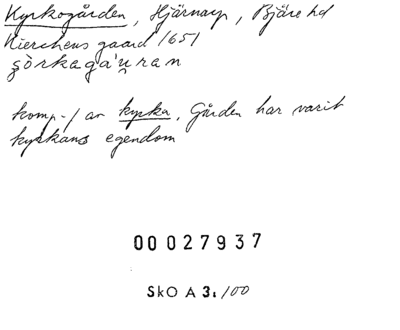 Kyrkogården, Hjärnarp, Bjäre hd
Kierckens gaard 1651
komp-/ av kyrka, Gården har varit
kyrkans egendom
00 027937
SkO A 3: /00